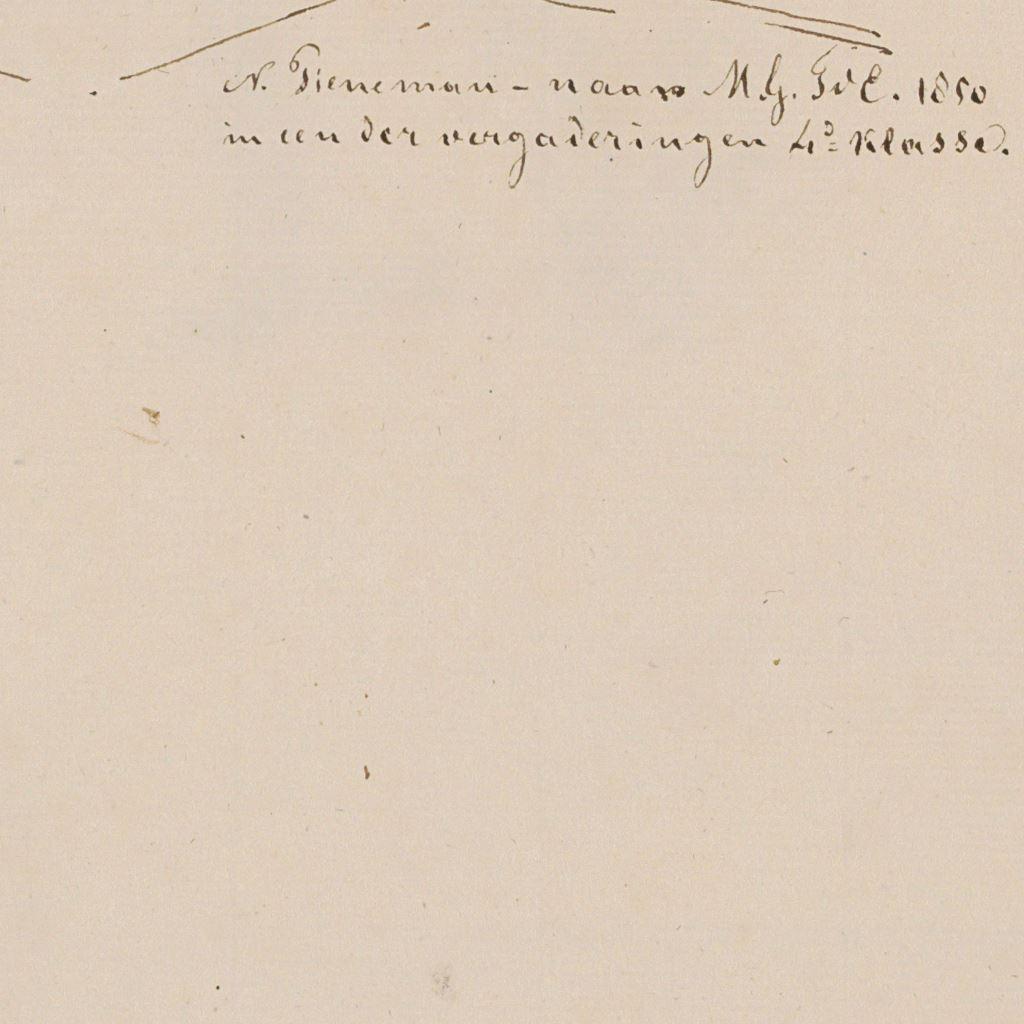 N. Pieneman - naar M.G. TvE. 1850
in een der vergaderingen 4e Klasse.